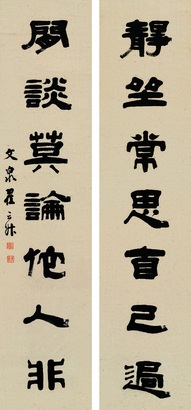 靜坐常思自己過
閒談莫論他人非
文泉翟云升